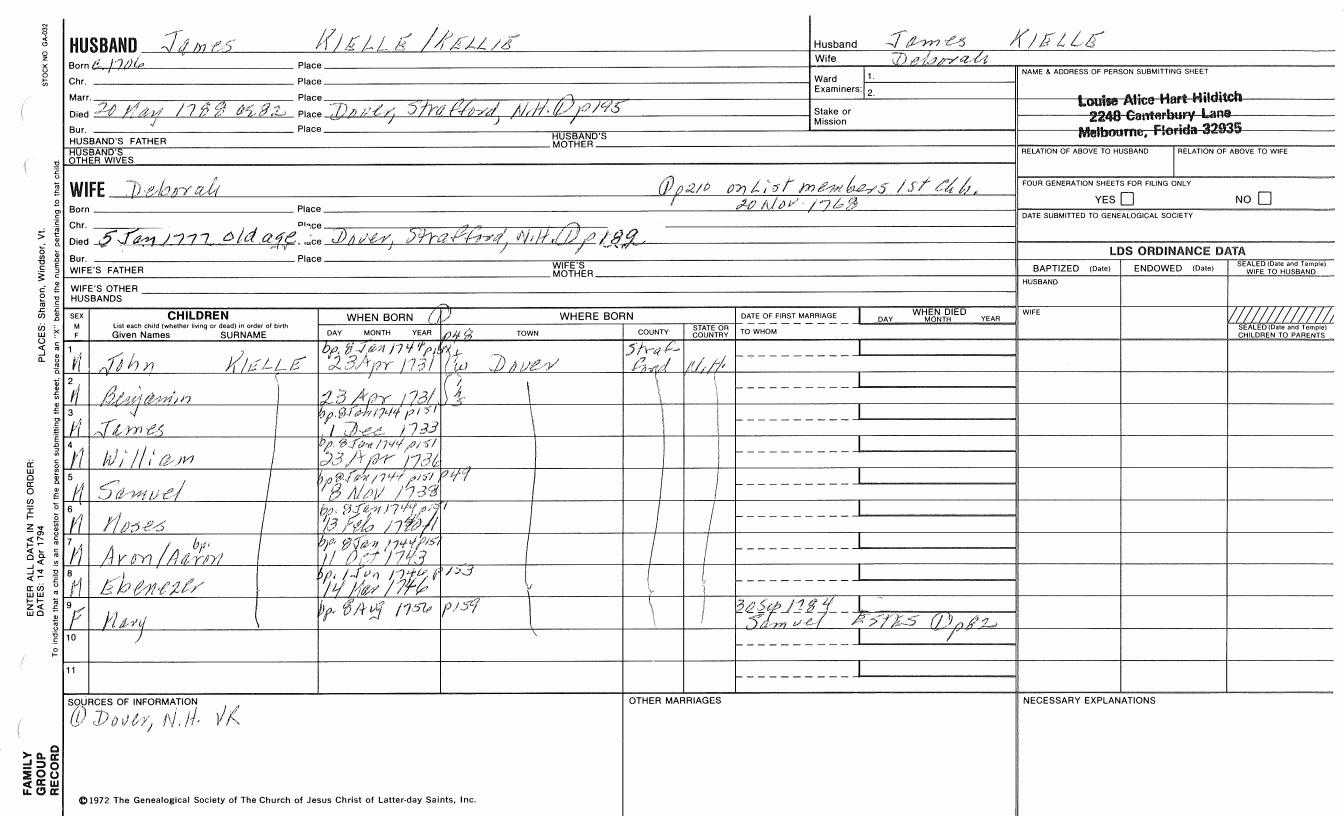 STOCK NO. GA-032
HUSBAND James KIELLE/KELLIE
Husband James KIELLE
Wife Deborah
Born c. 1706 Place
Chr. Place
Marr. Place
Died 20 May 1788 ae 82 Place Dover, Strafford, N.H. ① p195
Bur. Place
HUSBAND'S FATHER
HUSBAND'S MOTHER
HUSBAND'S OTHER WIVES
Ward Examiners: 1.
2.
Stake or Mission
NAME & ADDRESS OF PERSON SUBMITTING SHEET
Louise Alice Hart Hilditch
2248 Canterbury Lane
Melbourne, Florida 32935
RELATION OF ABOVE TO HUSBAND RELATION OF ABOVE TO WIFE
FOUR GENERATION SHEETS FOR FILING ONLY
YES NO
DATE SUBMITTED TO GENEALOGICAL SOCIETY
WIFE Deborah ① p210 on List members 1st Chh.
20 Nov 1768
Born Place
Chr. Place
Died 5 Jan 1777 old age Place Dover, Strafford, N.H. ① p189
Bur. Place
WIFE'S FATHER
WIFE'S MOTHER
WIFE'S OTHER HUSBANDS
LDS ORDINANCE DATA
BAPTIZED (Date) ENDOWED (Date) SEALED (Date and Temple) WIFE TO HUSBAND
HUSBAND
WIFE
SEALED (Date and Temple) CHILDREN TO PARENTS
SEX M F
CHILDREN
List each child (whether living or dead) in order of birth
Given Names SURNAME
WHEN BORN ①
DAY MONTH YEAR p48
WHERE BORN
TOWN COUNTY STATE OR COUNTRY
DATE OF FIRST MARRIAGE
TO WHOM
WHEN DIED
DAY MONTH YEAR
bp. 8 Jan 1744 p151
1 M John KIELLE 23 Apr 1731 (twins) Dover Strafford N.H.
2 M Benjamin 23 Apr 1731
bp. 8 Jan 1744 p151
3 M James 1 Dec 1733
bp 8 Jan 1744 p151
4 M William 23 Apr 1736
bp 8 Jan 1744 p151 p49
5 M Samuel 8 Nov 1738
bp. 8 Jan 1744 p151
6 M Moses 13 Feb 1740/1
bp. 8 Jan 1744 p151
7 M Aron/Aaron bp. 11 Oct 1743
bp. 1 Jun 1746 p153
8 M Ebenezer 14 Mar 1746
9 F Mary bp. 8 Aug 1756 p159 30 Sep 1784
Samuel ESTES ① p82
10
11
SOURCES OF INFORMATION
① Dover, N.H. VR
OTHER MARRIAGES
NECESSARY EXPLANATIONS
©1972 The Genealogical Society of The Church of Jesus Christ of Latter-day Saints, Inc.
FAMILY GROUP RECORD
ENTER ALL DATA IN THIS ORDER:
DATES: 14 Apr 1794
PLACES: Sharon, Windsor, Vt.
To indicate that a child is an ancestor of the person submitting the sheet, place an "X" behind the number pertaining to that child.